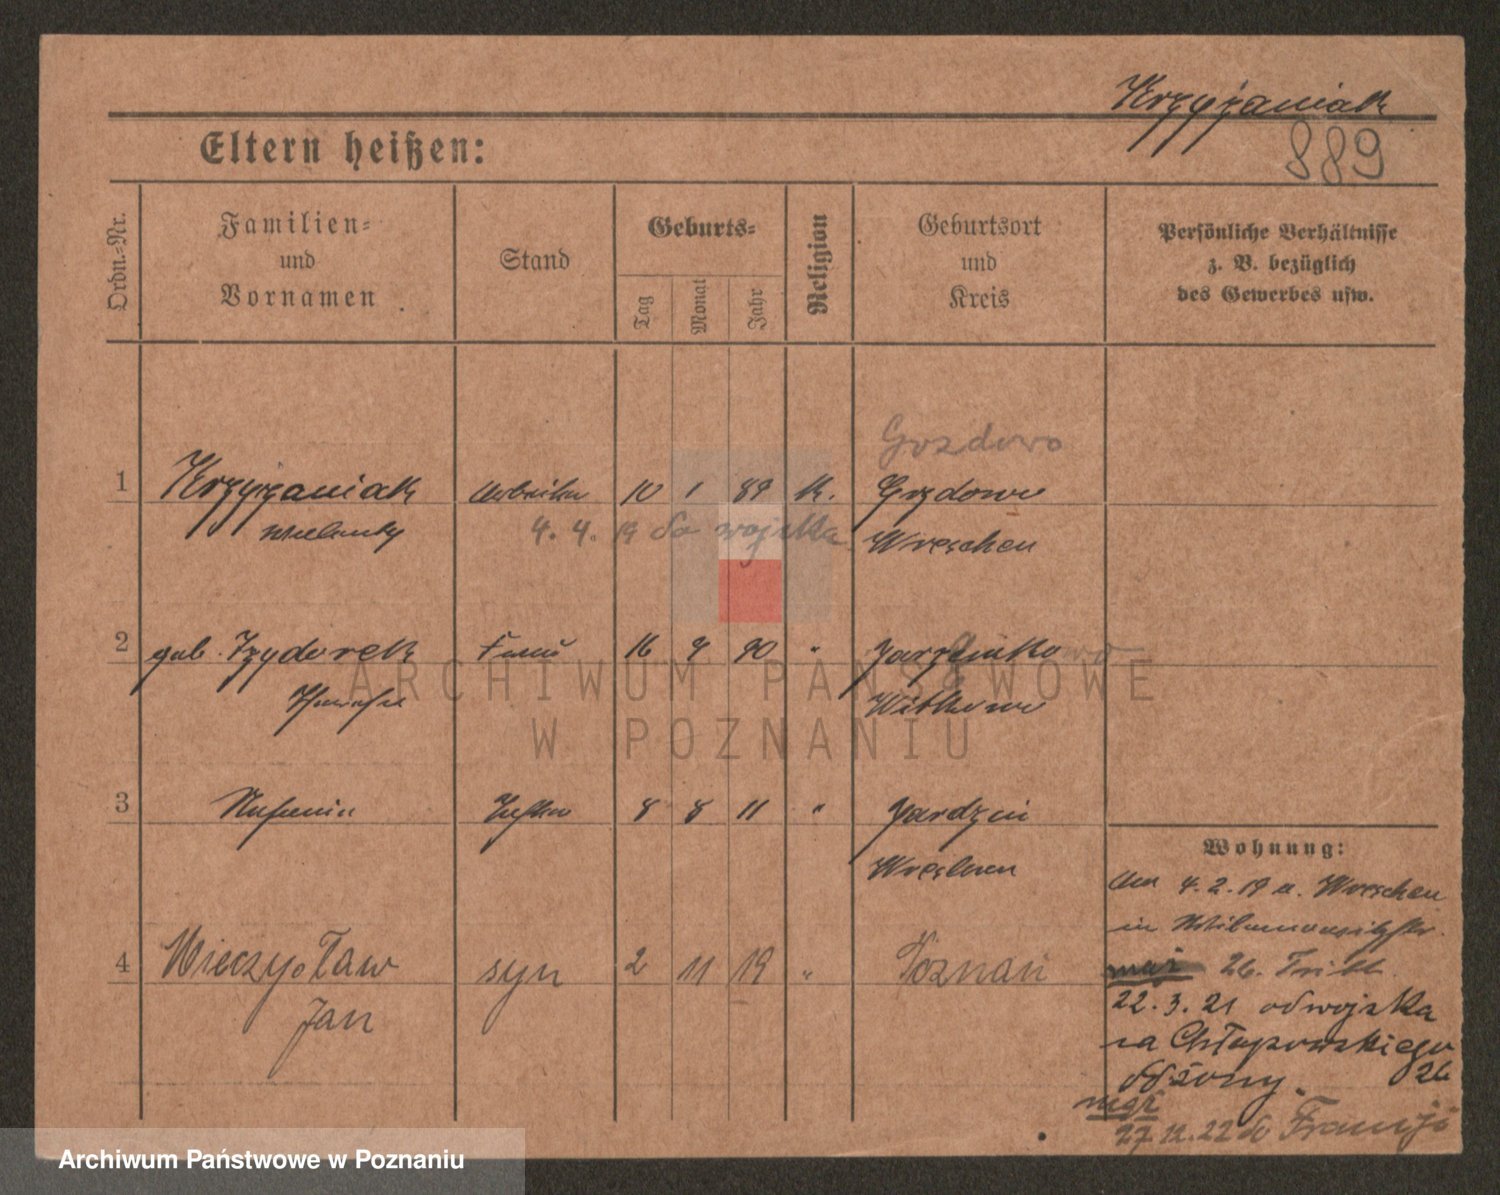 Krzyżaniak
889
Eltern heißen:
Ordn.-Nr.
Familien-
und
Vornamen
Stand
Geburts-
Tag
Monat
Jahr
Religion
Geburtsort
und
Kreis
Persönliche Verhältnisse
z. B. bezüglich
des Gewerbes usw.
Gozdowo
1 Krzyżaniak Arbeiter 10 1 89 k. Gozdowo
4. 4. 19 do wojska Wreschen
2 geb. Izydorek Frau 16 9 90 "
Witkowo
3 Tochter 8 8 11 "
Wreschen
4 Mieczysław syn 2 11 19 " Poznań
Jan
Wohnung:
4. 2. 19 a. Wreschen
in
mąż 26.
22. 3. 21 od wojska
na Chłapowskiego
26
od żony
mąż
27. 12. 22 do Francji
ARCHIWUM PAŃSTWOWE
W POZNANIU
Archiwum Państwowe w Poznaniu